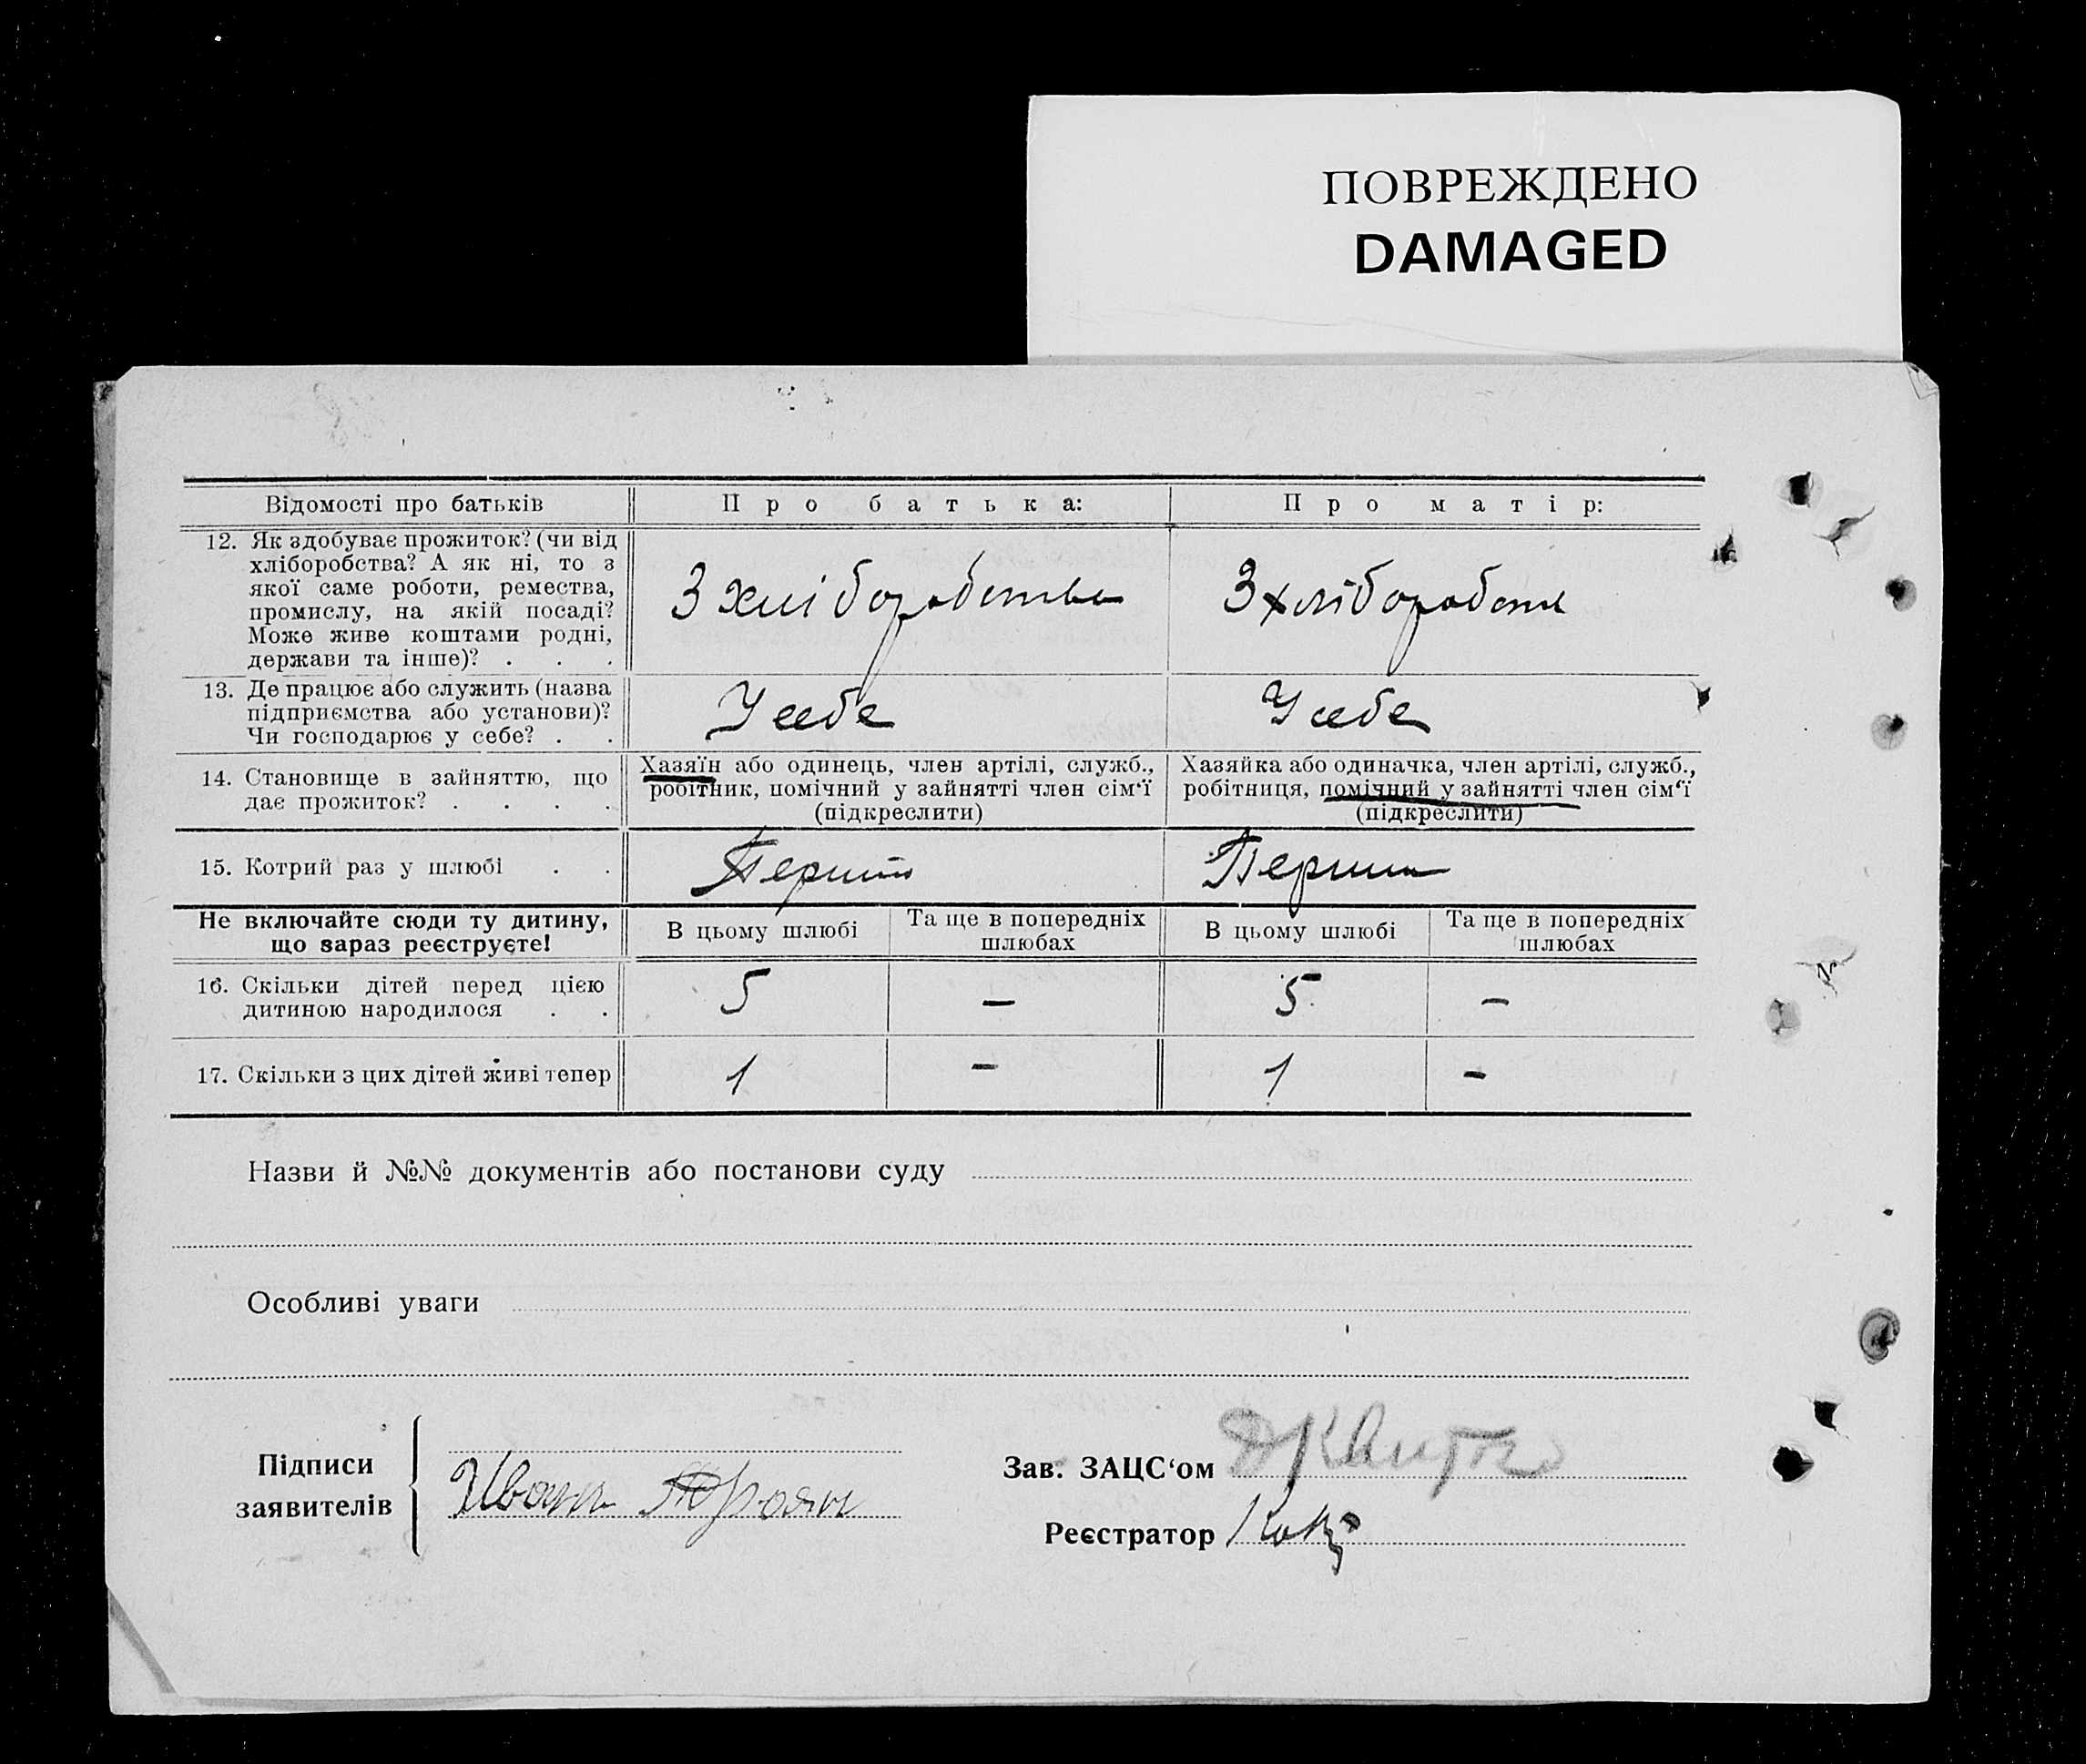 ПОВРЕЖДЕНО
DAMAGED
Відомості про батьків
Про батька:
Про матір:
12. Як здобуває прожиток? (чи від
хліборобства? А як ні, то з
якої саме роботи, ремества,
промислу, на якій посаді?
Може живе коштами родні,
держави та інше)? . . .
З хліборобства
З хліборобств
13. Де працює або служить (назва
підприємства або установи)?
Чи господарює у себе? . .
У себе
У себе
14. Становище в зайняттю, що
дає прожиток? . . . .
Хазяїн або одинець, член артілі, служб.,
робітник, помічний у зайнятті член сім'ї
(підкреслити)
Хазяйка або одиначка, член артілі, служб.,
робітниця, помічний у зайнятті член сім'ї
(підкреслити)
15. Котрий раз у шлюбі . .
Перший
Перший
Не включайте сюди ту дитину,
що зараз реєструєте!
В цьому шлюбі
Та ще в попередніх
шлюбах
В цьому шлюбі
Та ще в попередніх
шлюбах
16. Скільки дітей перед цією
дитиною народилося . .
5
—
5
—
17. Скільки з цих дітей живі тепер
1
—
1
—
Назви й №№ документів або постанови суду
Особливі уваги
Підписи
заявителів
Иван Троян
Зав. ЗАЦС'ом
Реєстратор